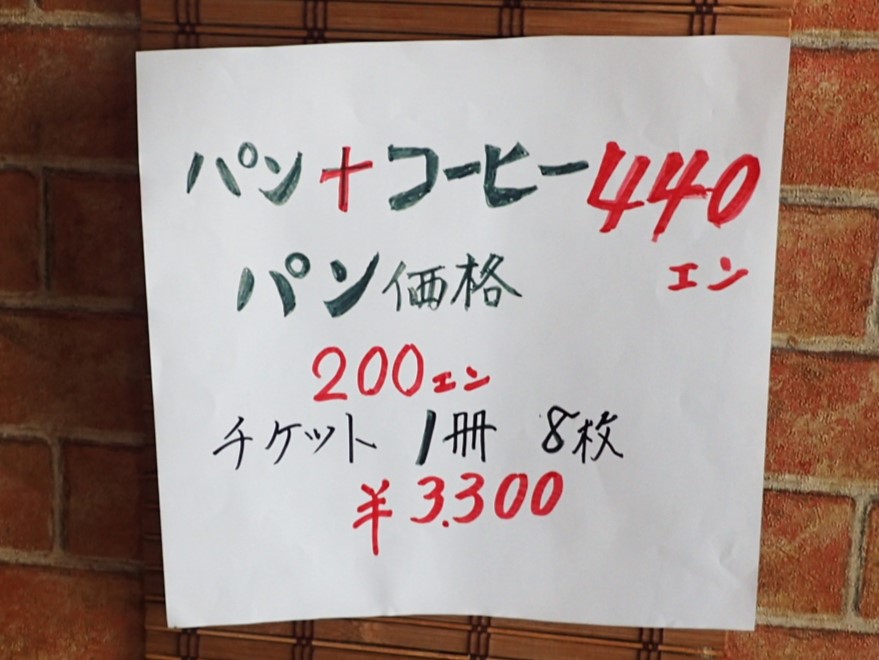 パン+コーヒー440
エン
パン価格
200エン
チケット 1冊 8枚
¥3.300